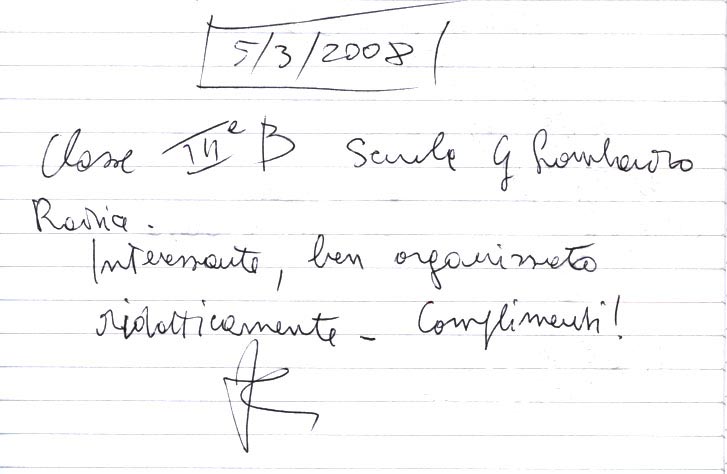 5/3/2008
Classe IIIª B Scuola G Lombardo
Radice.
Interessante, ben organizzata
didatticamente - Complimenti!